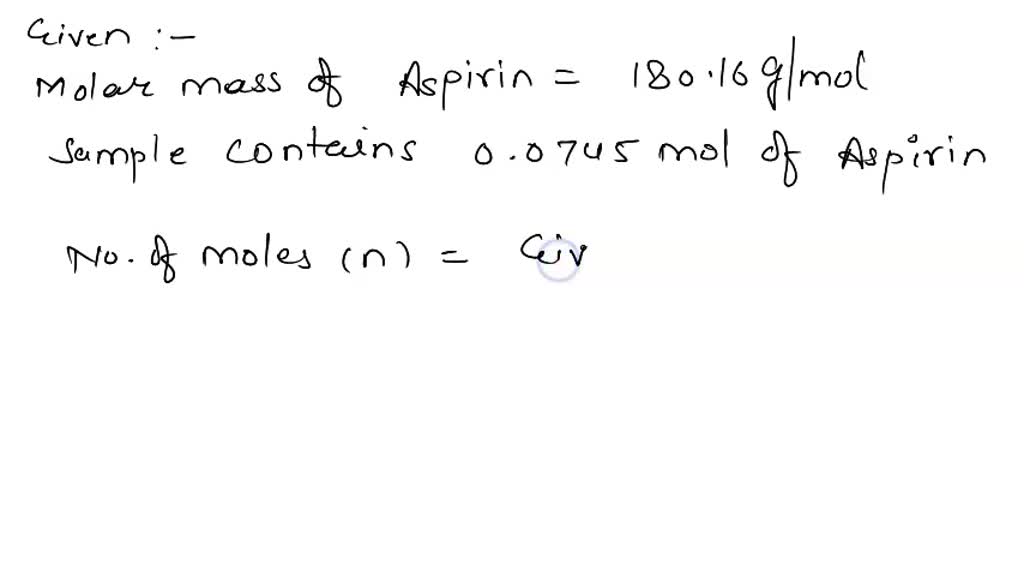 Given :-
Molar mass of Aspirin = 180.16 g/mol
Sample contains 0.0745 mol of Aspirin
No. of moles (n) = Giv